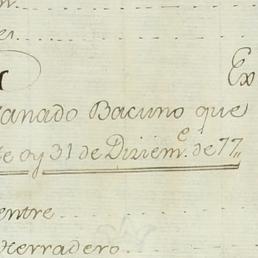 Ex
anado Bacuno que
te oy 31 de Diziem.e de 77,,
entre
Herradero